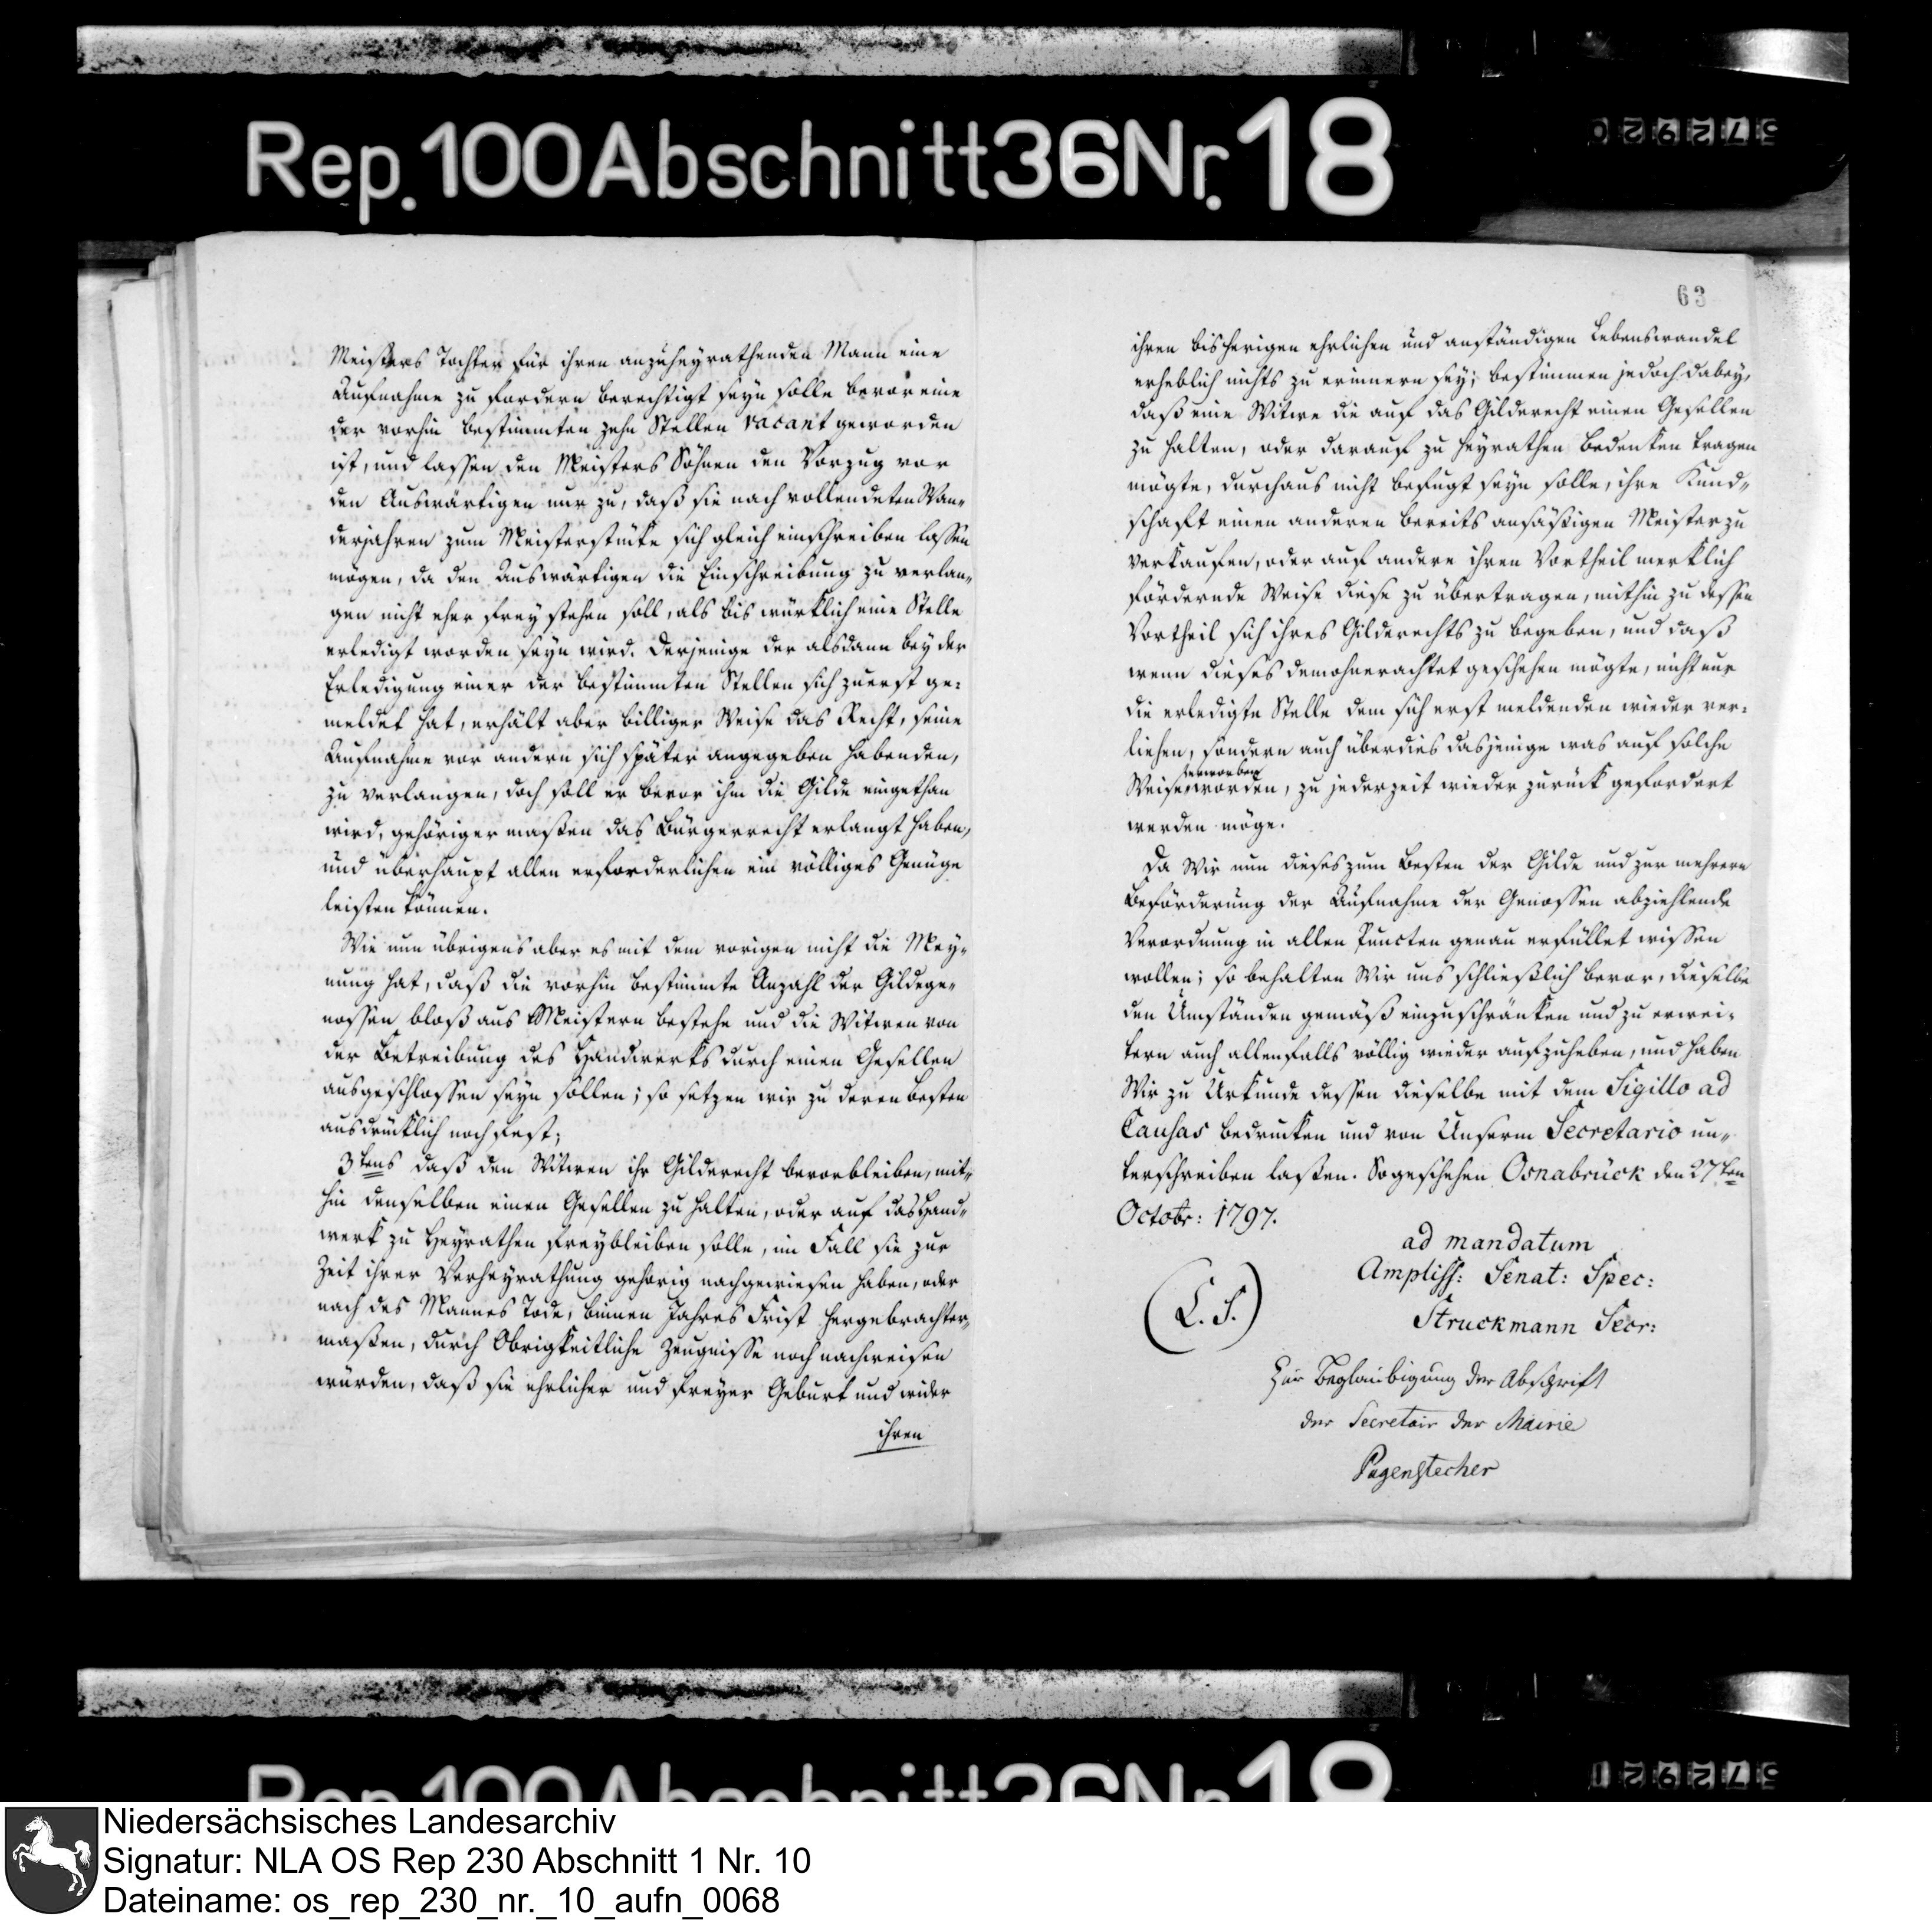 Rep. 100 Abschnitt 36 Nr. 18
Meisters Tochter für ihren anzuheyrathenden Mann eine
Aufnahme zu fordern berechtigt seyn solle bevor eine
der vorhin bestimmten zehn Stellen vacant geworden
ist, und lassen den Meisters Söhnen den Vorzug vor
den Auswärtigen nur zu, daß sie nach vollendeten Wan„
derjahren zum Meisterstücke sich gleich einschreiben lassen
mögen, da den Auswärtigen die Einschreibung zu verlan„
gen nicht eher frey stehen soll, als bis würklich eine Stelle
erledigt worden seyn wird. Derjenige der alsdann bey der
Erledigung einer der bestimmten Stellen sich zuerst ge=
meldet hat, erhält aber billiger Weise das Recht, seine
Aufnahme vor andern sich später angegeben habenden,
zu verlangen, doch soll er bevor ihm die Gilde eingethan
wird, gehöriger maßen das Bürgerrecht erlangt haben,
und überhaupt allen erforderlichen ein völliges Genüge
leisten können.
Wie nun übrigens aber es mit dem vorigen nicht die Mey„
nung hat, daß die vorhin bestimmte Anzahl der Gildege„
nossen bloß aus Meistern bestehe und die Witwen von
der Betreibung des Handwerks durch einen Gesellen
ausgeschlossen seyn sollen; so setzen wir zu deren Besten
ausdrücklich noch fest;
3tens daß den Witwen ihr Gilderecht bevorbleiben, mit„
hin denselben einen Gesellen zu halten, oder auf das Hand„
werk zu Heyrathen freybleiben solle, im Fall sie zur
Zeit ihrer Verheyrathung gehörig nachgewiesen haben, oder
nach des Mannes Tode, binnen Jahres Frist hergebrachter„
maßen, durch Obrigkeitliche Zeugnisse noch nachweisen
würden, daß sie ehrlicher und freyer Geburt und wider
ihren
63
ihren bisherigen ehrlichen und anständigen Lebenswandel
erheblich nichts zu erinnern sey; bestimmen jedoch dabey,
daß eine Witwe die auf das Gilderecht einen Gesellen
zu halten, oder darauf zu heyrathen Bedenken tragen
mögte, durchaus nicht befugt seyn solle, ihre Kund„
schaft einen anderen bereits ansäßigen Meister zu
verkaufen, oder auf andere ihren Vortheil merklich
fördernde Weise diese zu übertragen, mithin zu dessen
Vortheil sich ihres Gilderechts zu begeben, und daß
wenn dieses demohnerachtet geschehen mögte, nicht nur
die erledigte Stelle dem sich erst meldenden wieder ver=
liehen, sondern auch überdies dasjenige was auf solche
Weise erworben worden, zu jederzeit wieder zurück gefordert
werden möge.
Da Wir nun dieses zum Besten der Gilde und zur mehrern
Beförderung der Aufnahme der Genossen abziehlende
Verordnung in allen Puncten genau erfüllet wissen
wollen; so behalten Wir uns schließlich bevor, dieselbe
den Umständen gemäß einzuschränken und zu erwei=
tern auch allenfalls völlig wieder aufzuheben, und haben
Wir zu Urkunde dessen dieselbe mit dem Sigillo ad
Causas bedrucken und von Unserm Secretario un„
terschreiben laßen. So geschehen Osnabrück den 27ten
Octobr: 1797.
ad mandatum
Ampliss: Senat: Spec:
(L. S.)
Struckmann Secr:
Zur Beglaubigung der Abschrift
der Secretair der Mairie
Pagenstecher
Niedersächsisches Landesarchiv
Signatur: NLA OS Rep 230 Abschnitt 1 Nr. 10
Dateiname: os_rep_230_nr._10_aufn_0068